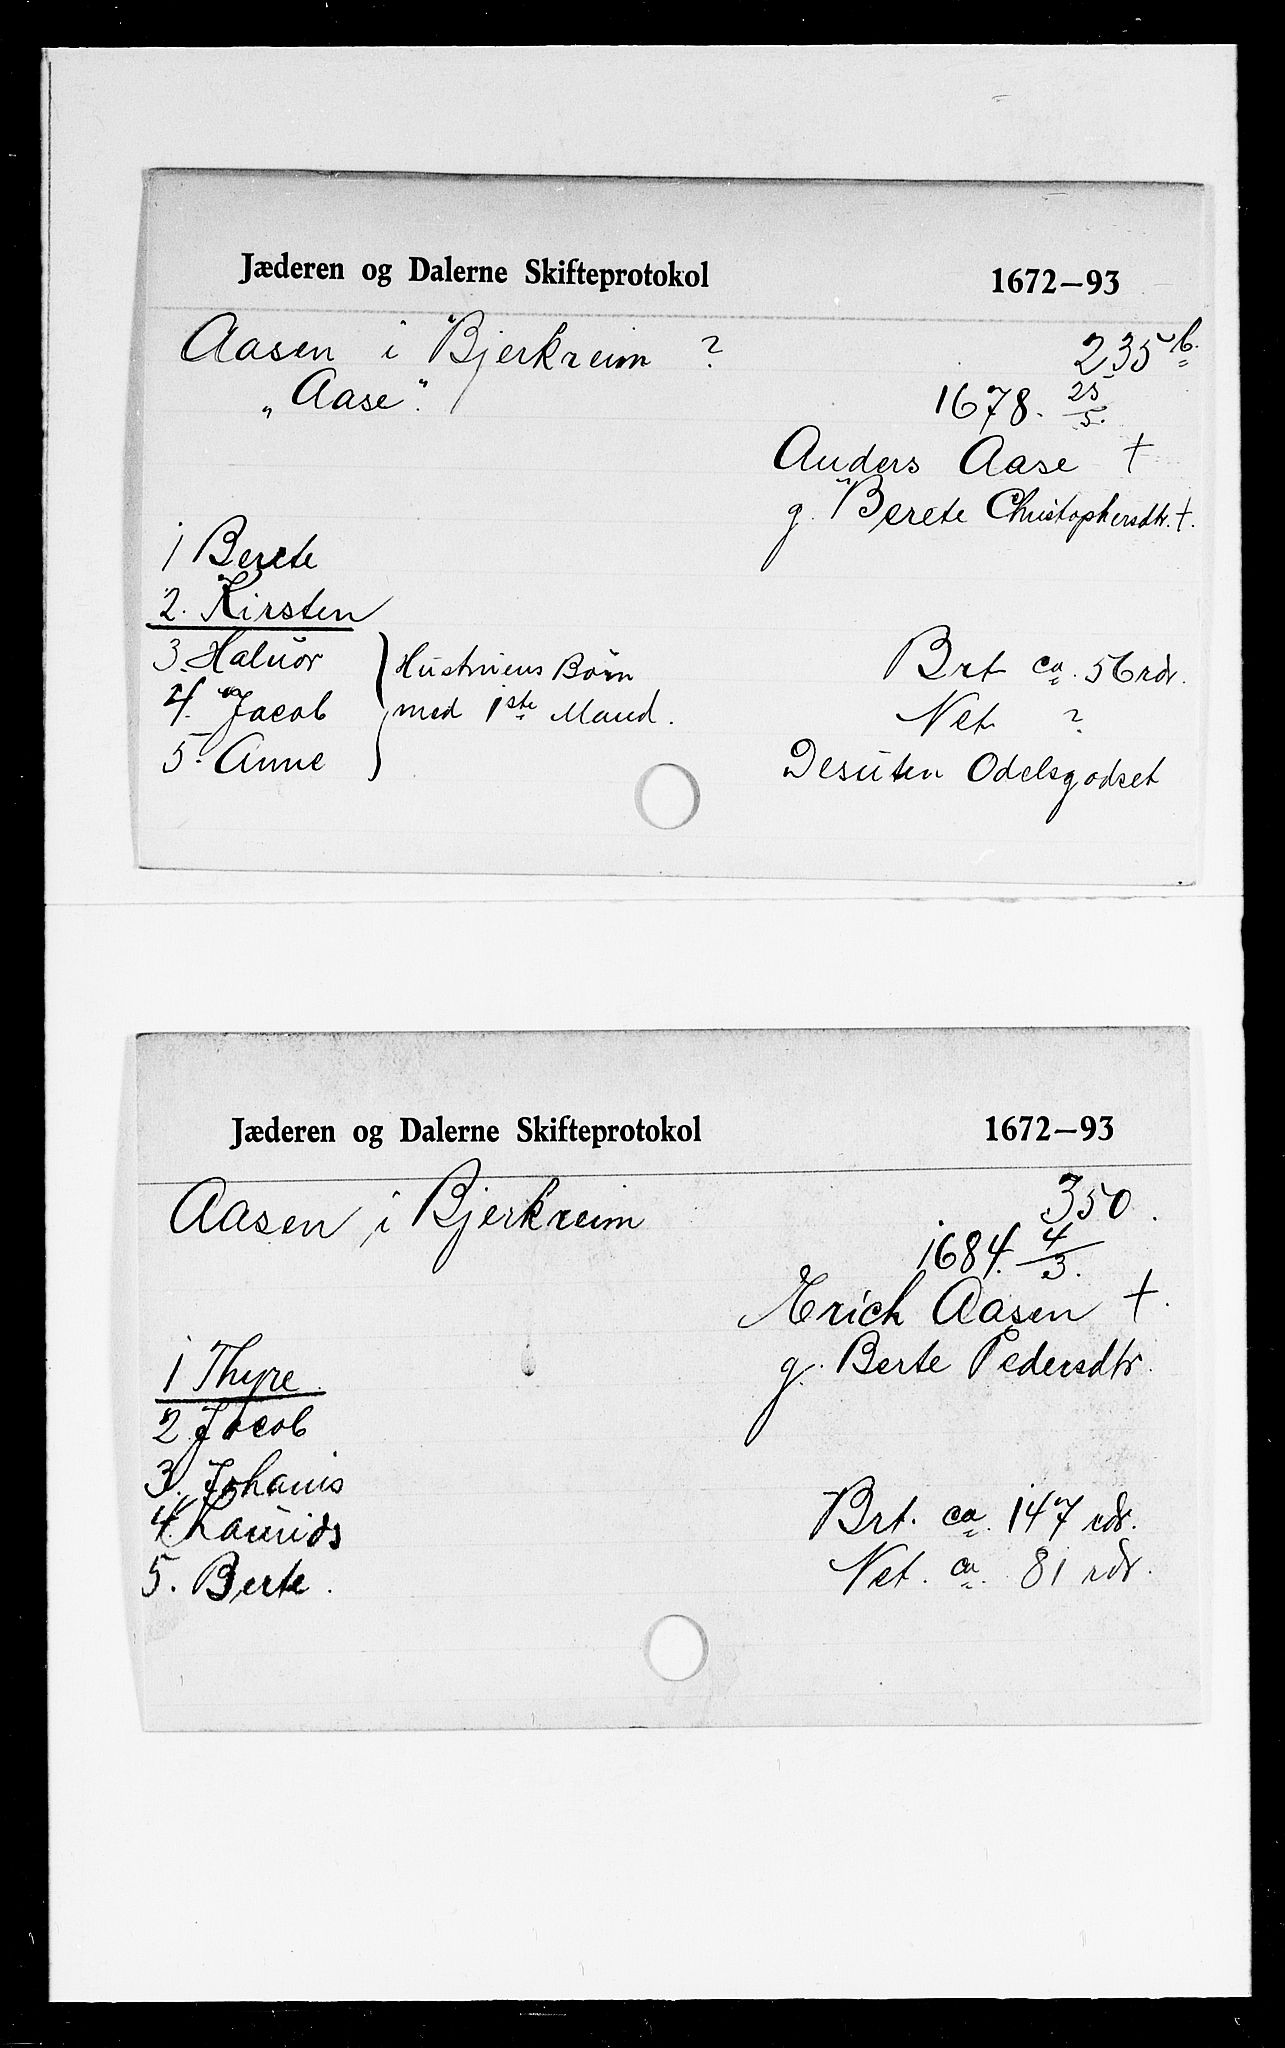 Jæderen og Dalerne Skifteprotokol 1672–93
Aasen i Bjerkreim ? 235 b.
„Aase". 1678. 25/5.
Anders Aase †
g. Berete Christophersdtr. †.
1 Berete
2. Kirsten
3. Haluor } Hustruens Börn Brt ca. 56 rdr.
4. Jacob med 1ste Mand. Net ?
5. Anne Desuten Odelsgodset
Jæderen og Dalerne Skifteprotokol 1672–93
Aasen i Bjerkreim 350.
1684. 4/3.
Erich Aasen †.
1 Thyre g. Berte Pedersdtr.
2 Jacob
3. Johanis
4. Laurids Brt. ca. 147 rdr.
5. Berte. Net. ca. 81 rdr.